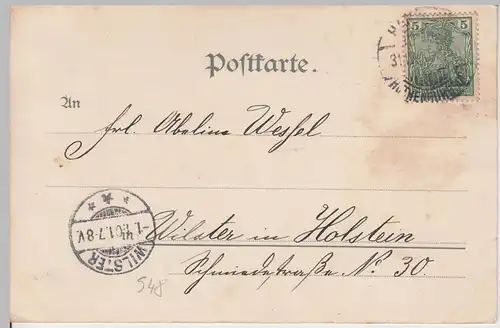 5 5
Postkarte.
An
Frl. Abeline Wessel
Wilster in Holstein
Schmiedestraße No 30.
WILSTER
7-8V.
548